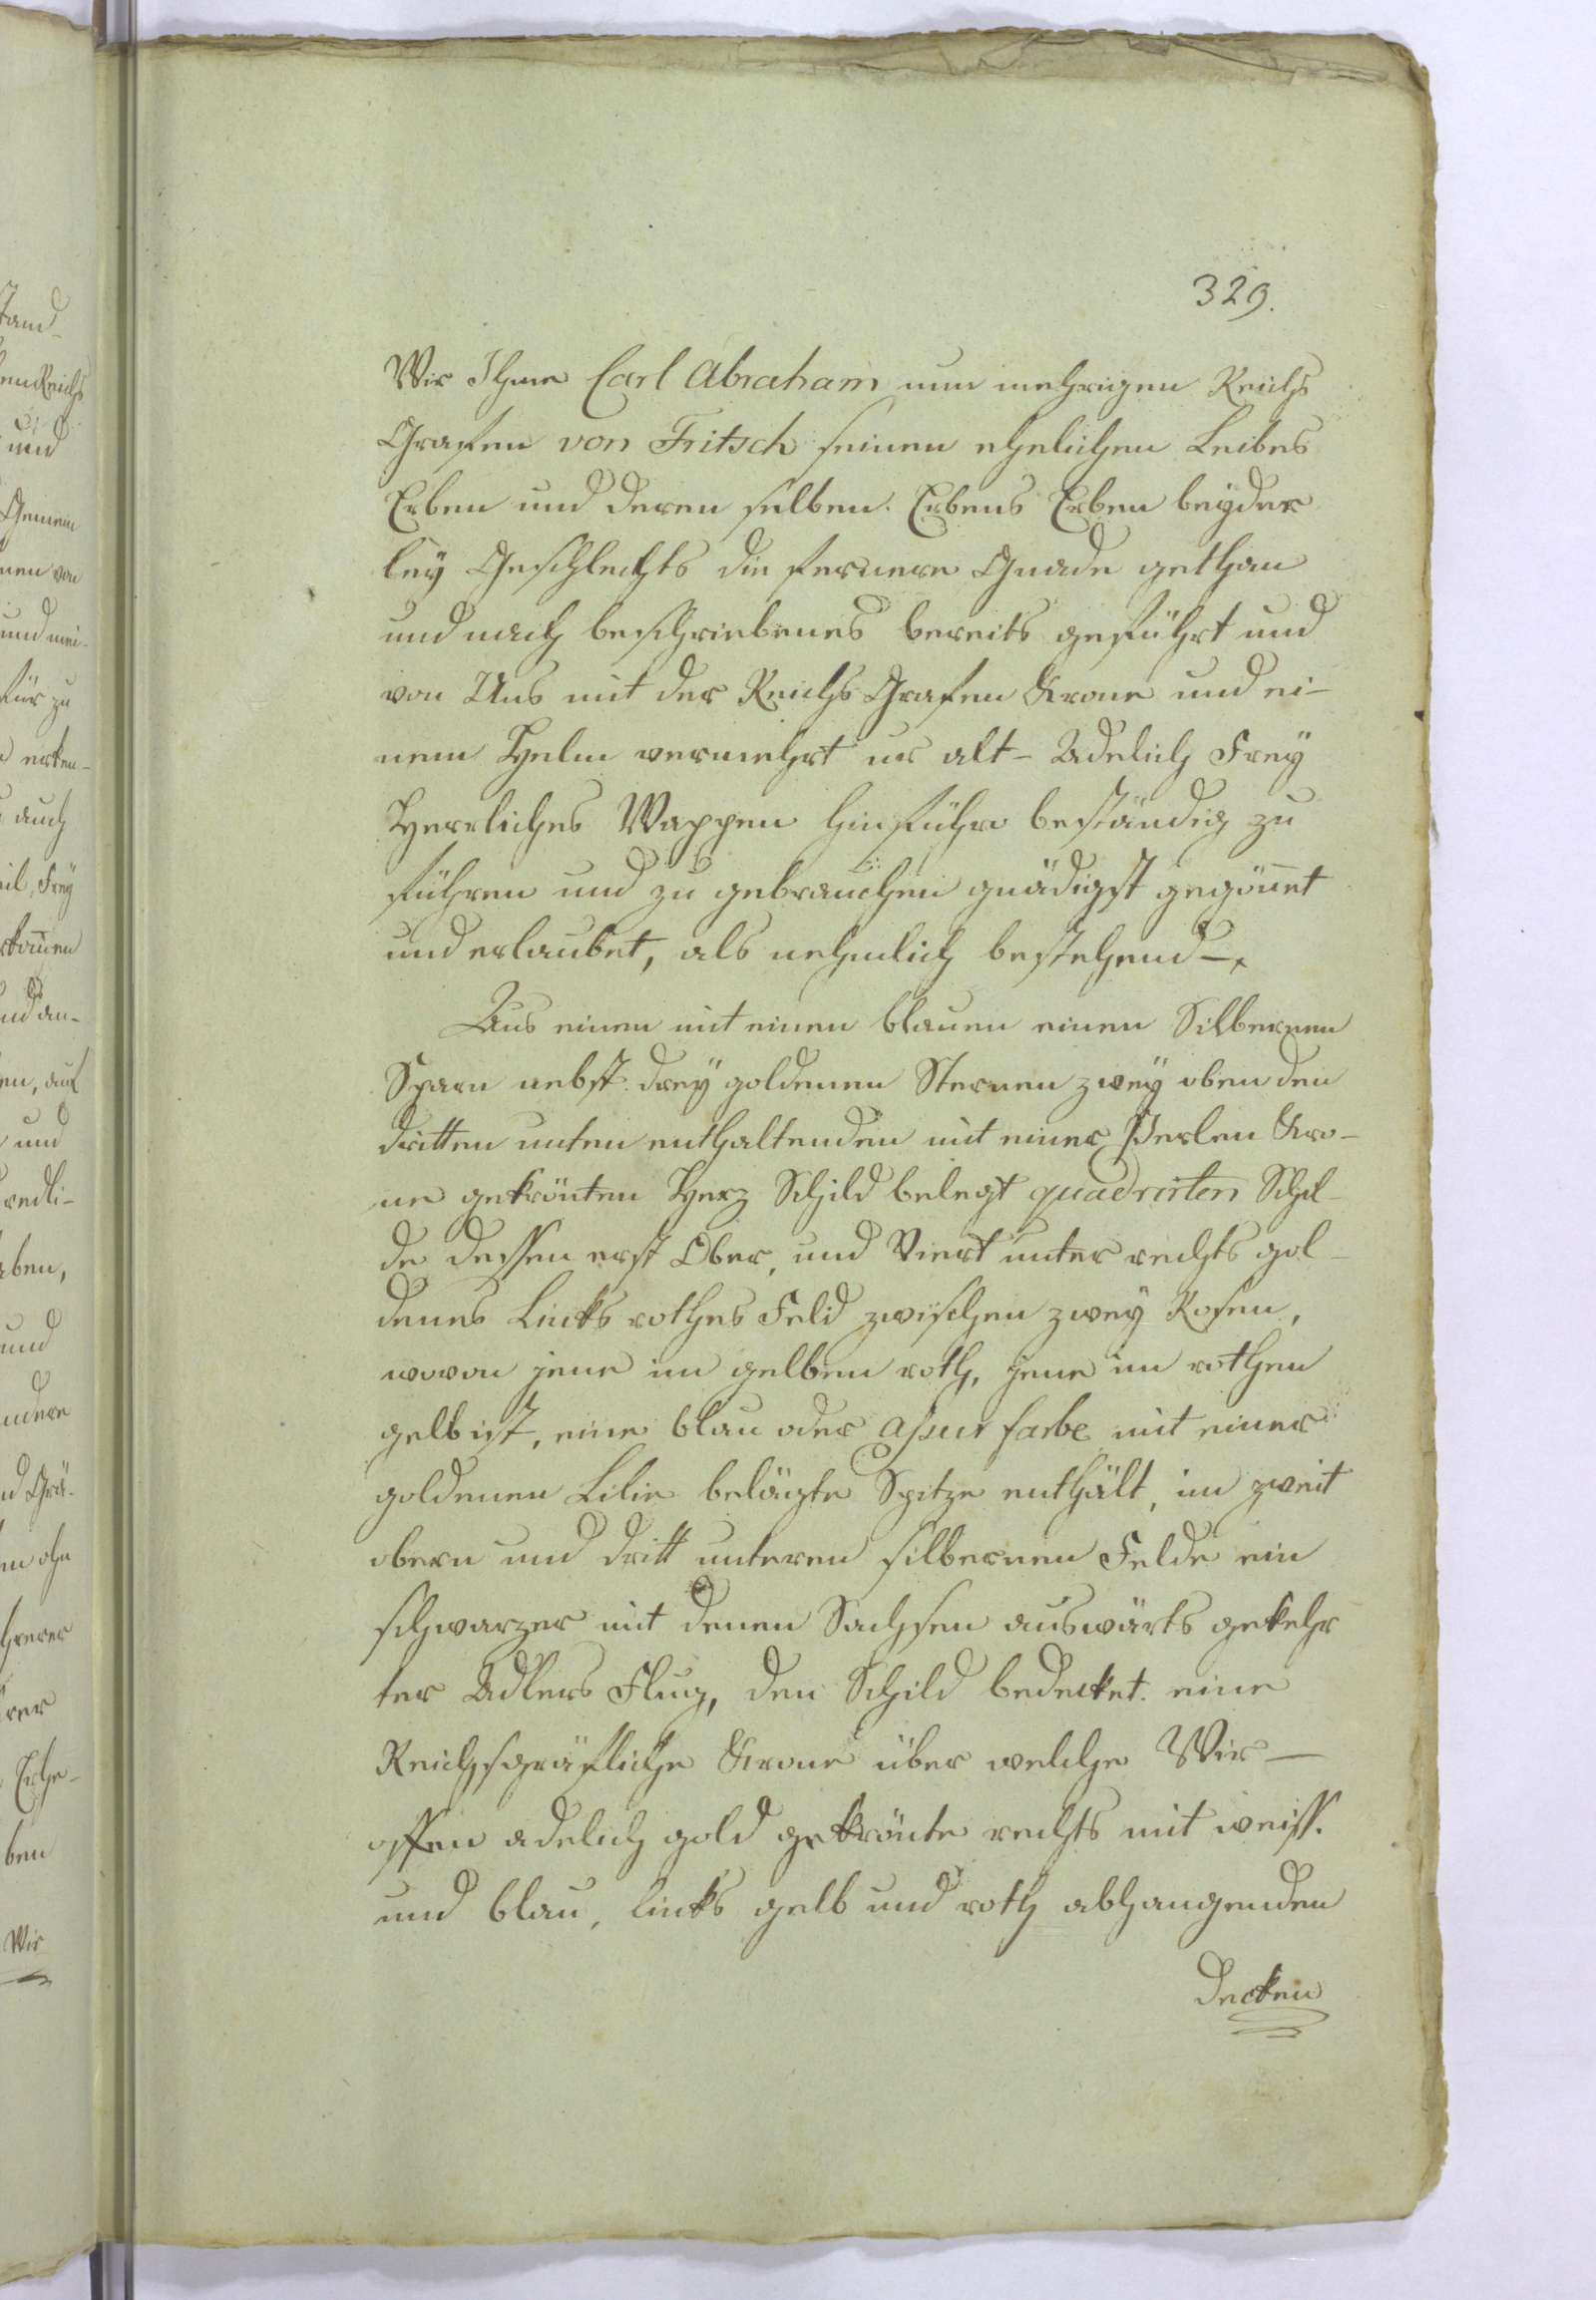 329.
Wir Ihme Carl Abraham nun mehrigen Reichs
Grafen von Fritsch seinen ehelichen Leibes
Erben und deren selben Erbens Erben beyder
ley Geschlechts die fernere Gnade gethan
und nach beschriebenes bereits geführt und
von Uns mit der Reichs Grafen Krone und ei-
nem Helm vermehrt ur alt-Adelich Frey
Herrliches Wappen hinführo beständig zu
führen und zu gebrauchen gnädigst gegönnet
und erlaubet, als nehmlich bestehend -
Aus einen mit einen blauen einen Silbernen
Sparn nebst drey goldenen Sternen zwey oben den
dritten unten enthaltenden mit einer Perlen Kro-
ne gekrönten Herz Schild belegt quadrirten Schil-
de dessen erst Ober, und Viert unter rechts gol-
denes Lincks rothes Feld zwischen zwey Rosen,
wovon jene im gelben roth, jene im rothen
gelb ist, eine blau oder assur farbe mit einer
goldenen Lilie belägte Spitze enthält, im zweit
obern und dritt unteren silbernen Felde ein
schwarzer mit denen Sachsen auswärts gekehr
ter Adlers Flug, den Schild bedecket eine
Reichsgräfliche Krone über welche Vier -
offen adelich gold gekrönte rechts mit weiss.
und blau, lincks gelb und roth abhangenden
Decken
tand-
und
Gemein
nen von
und mei-
für zu
erken-
auch
Frey
und
redli-
und
ohn
Erhe-
ben
Wir